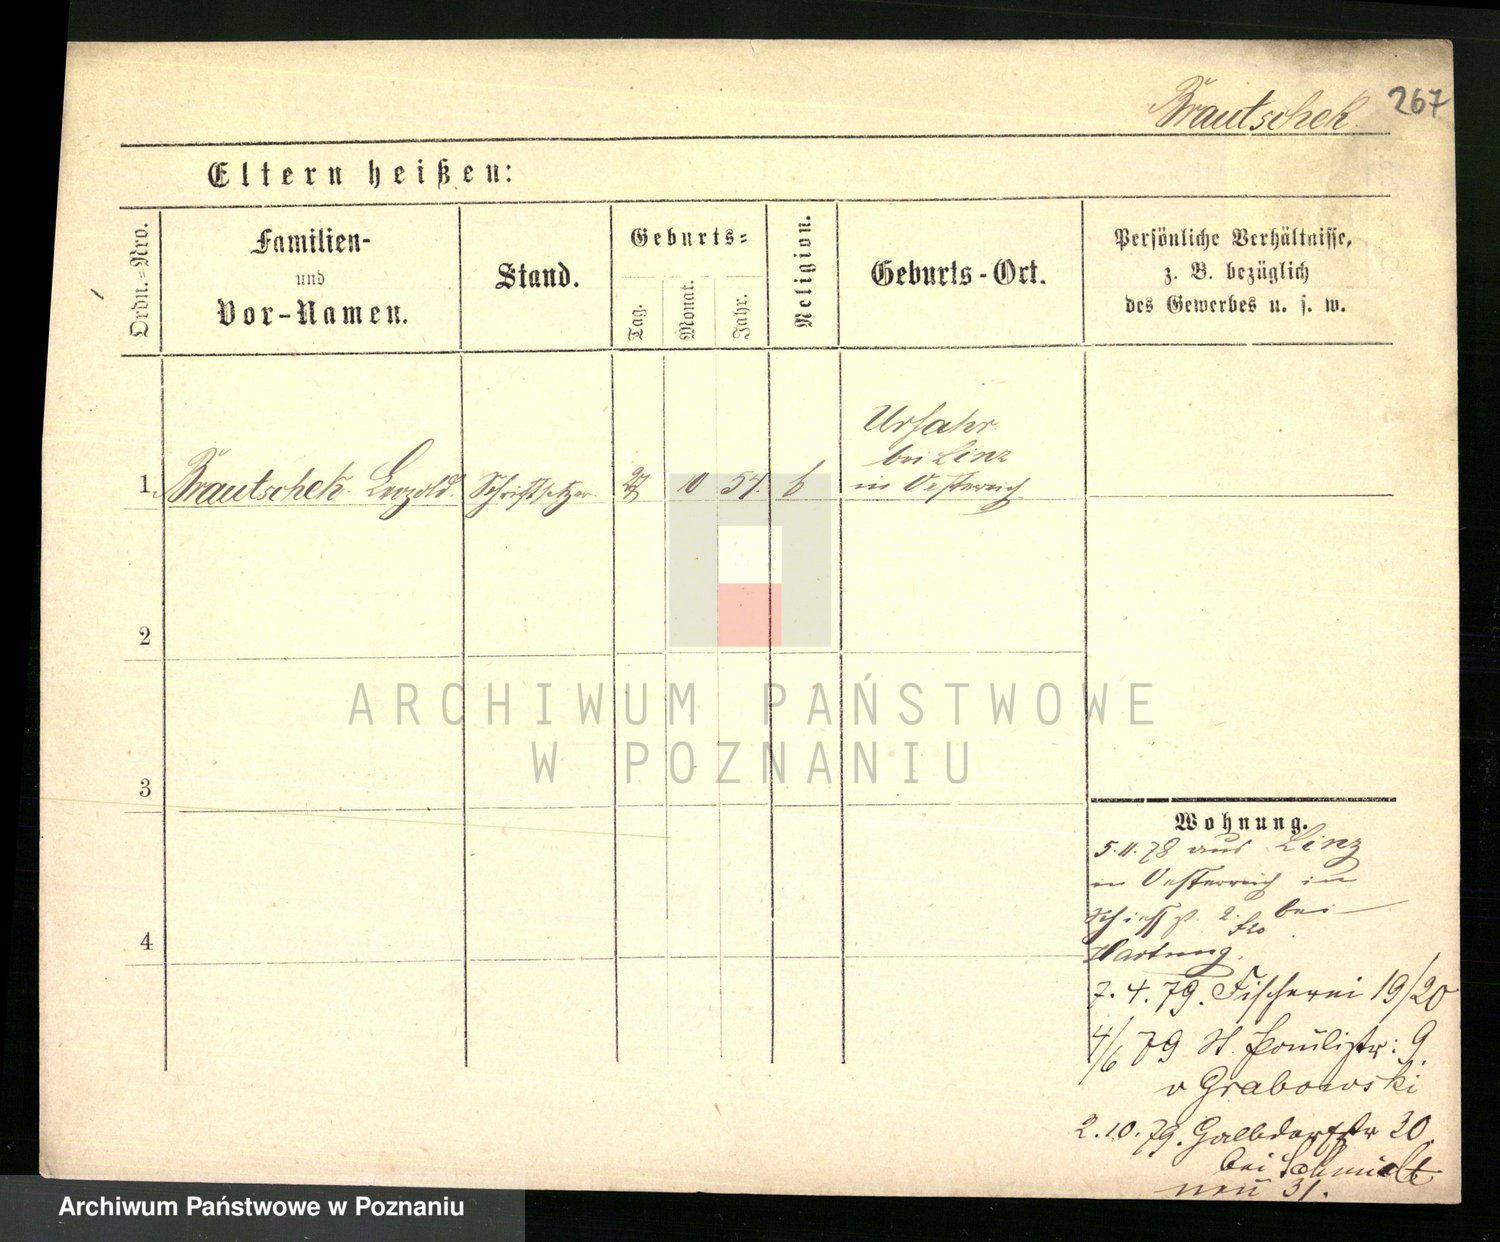 Brautschek 267
Eltern heißen:
Ordn.=Nro.
Familien-
und
Vor-Namen.
Stand.
Geburts=
Tag.
Monat.
Jahr.
Religion.
Geburts-Ort.
Persönliche Verhältnisse,
z. B. bezüglich
des Gewerbes u. s. w.
1. Brautschek Leopold. Schriftsetzer 10 54.
Urfahr
bei Linz
in Oesterreich
2
3
4
Wohnung.
5.11.78 aus Linz
in Oesterreich in
2. bei
Hartung.
7.4.79. Fischerei 19/20
4/6 79 St. Paulistr: 9.
v Grabowski
2.10.79. 30.
bei Schmidt
neu 31.
ARCHIWUM PAŃSTWOWE
W POZNANIU
Archiwum Państwowe w Poznaniu